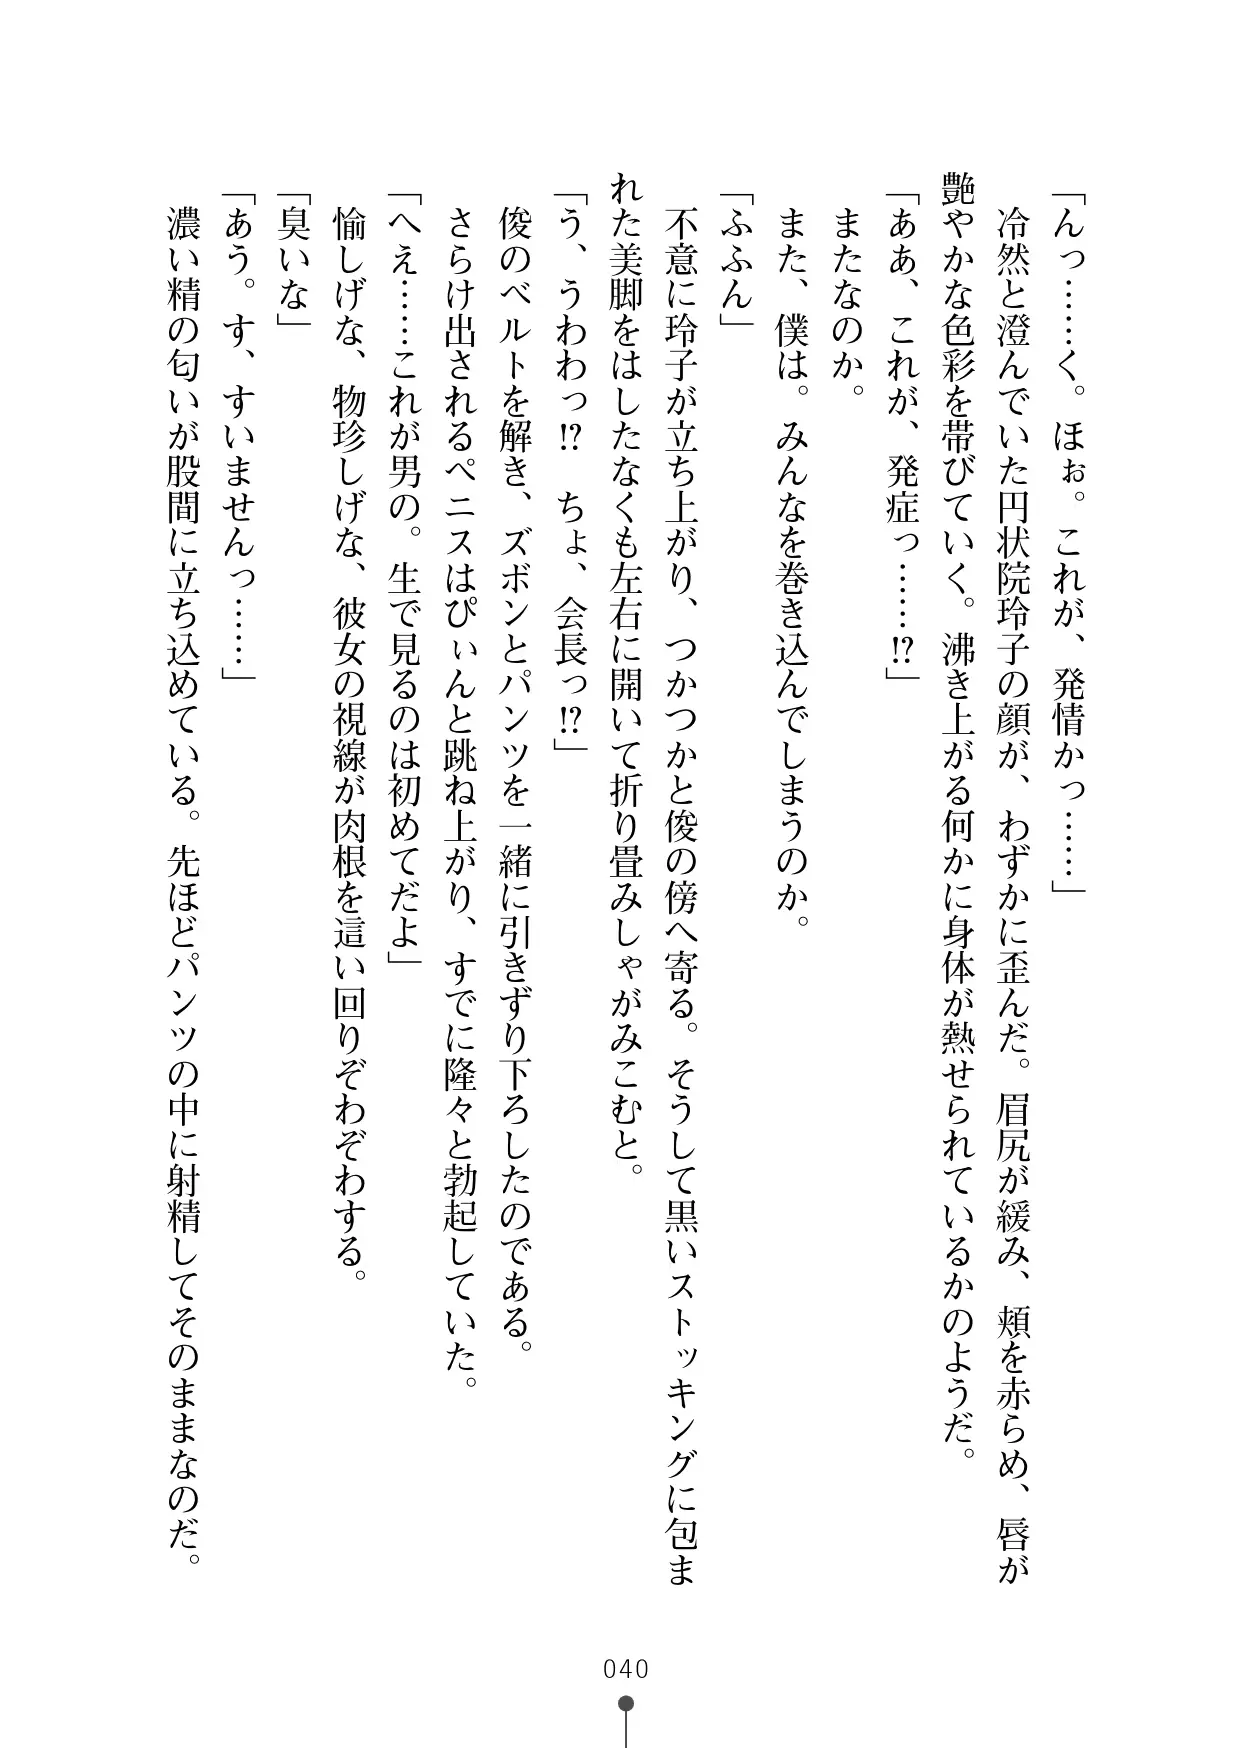 「んっ……く。ほぉ。これが、発情かっ……」
冷然と澄んでいた円状院玲子の顔が、わずかに歪んだ。眉尻が緩み、頬を赤らめ、唇が
艶やかな色彩を帯びていく。沸き上がる何かに身体が熱せられているかのようだ。
「ああ、これが、発症っ……!?」
またなのか。
また、僕は。みんなを巻き込んでしまうのか。
「ふふん」
不意に玲子が立ち上がり、つかつかと俊の傍へ寄る。そうして黒いストッキングに包ま
れた美脚をはしたなくも左右に開いて折り畳みしゃがみこむと。
「う、うわわっ!?　ちょ、会長っ!?」
俊のベルトを解き、ズボンとパンツを一緒に引きずり下ろしたのである。
さらけ出されるペニスはぴぃんと跳ね上がり、すでに隆々と勃起していた。
「へえ……これが男の。生で見るのは初めてだよ」
愉しげな、物珍しげな、彼女の視線が肉根を這い回りぞわぞわする。
「臭いな」
「あう。す、すいませんっ……」
濃い精の匂いが股間に立ち込めている。先ほどパンツの中に射精してそのままなのだ。
040